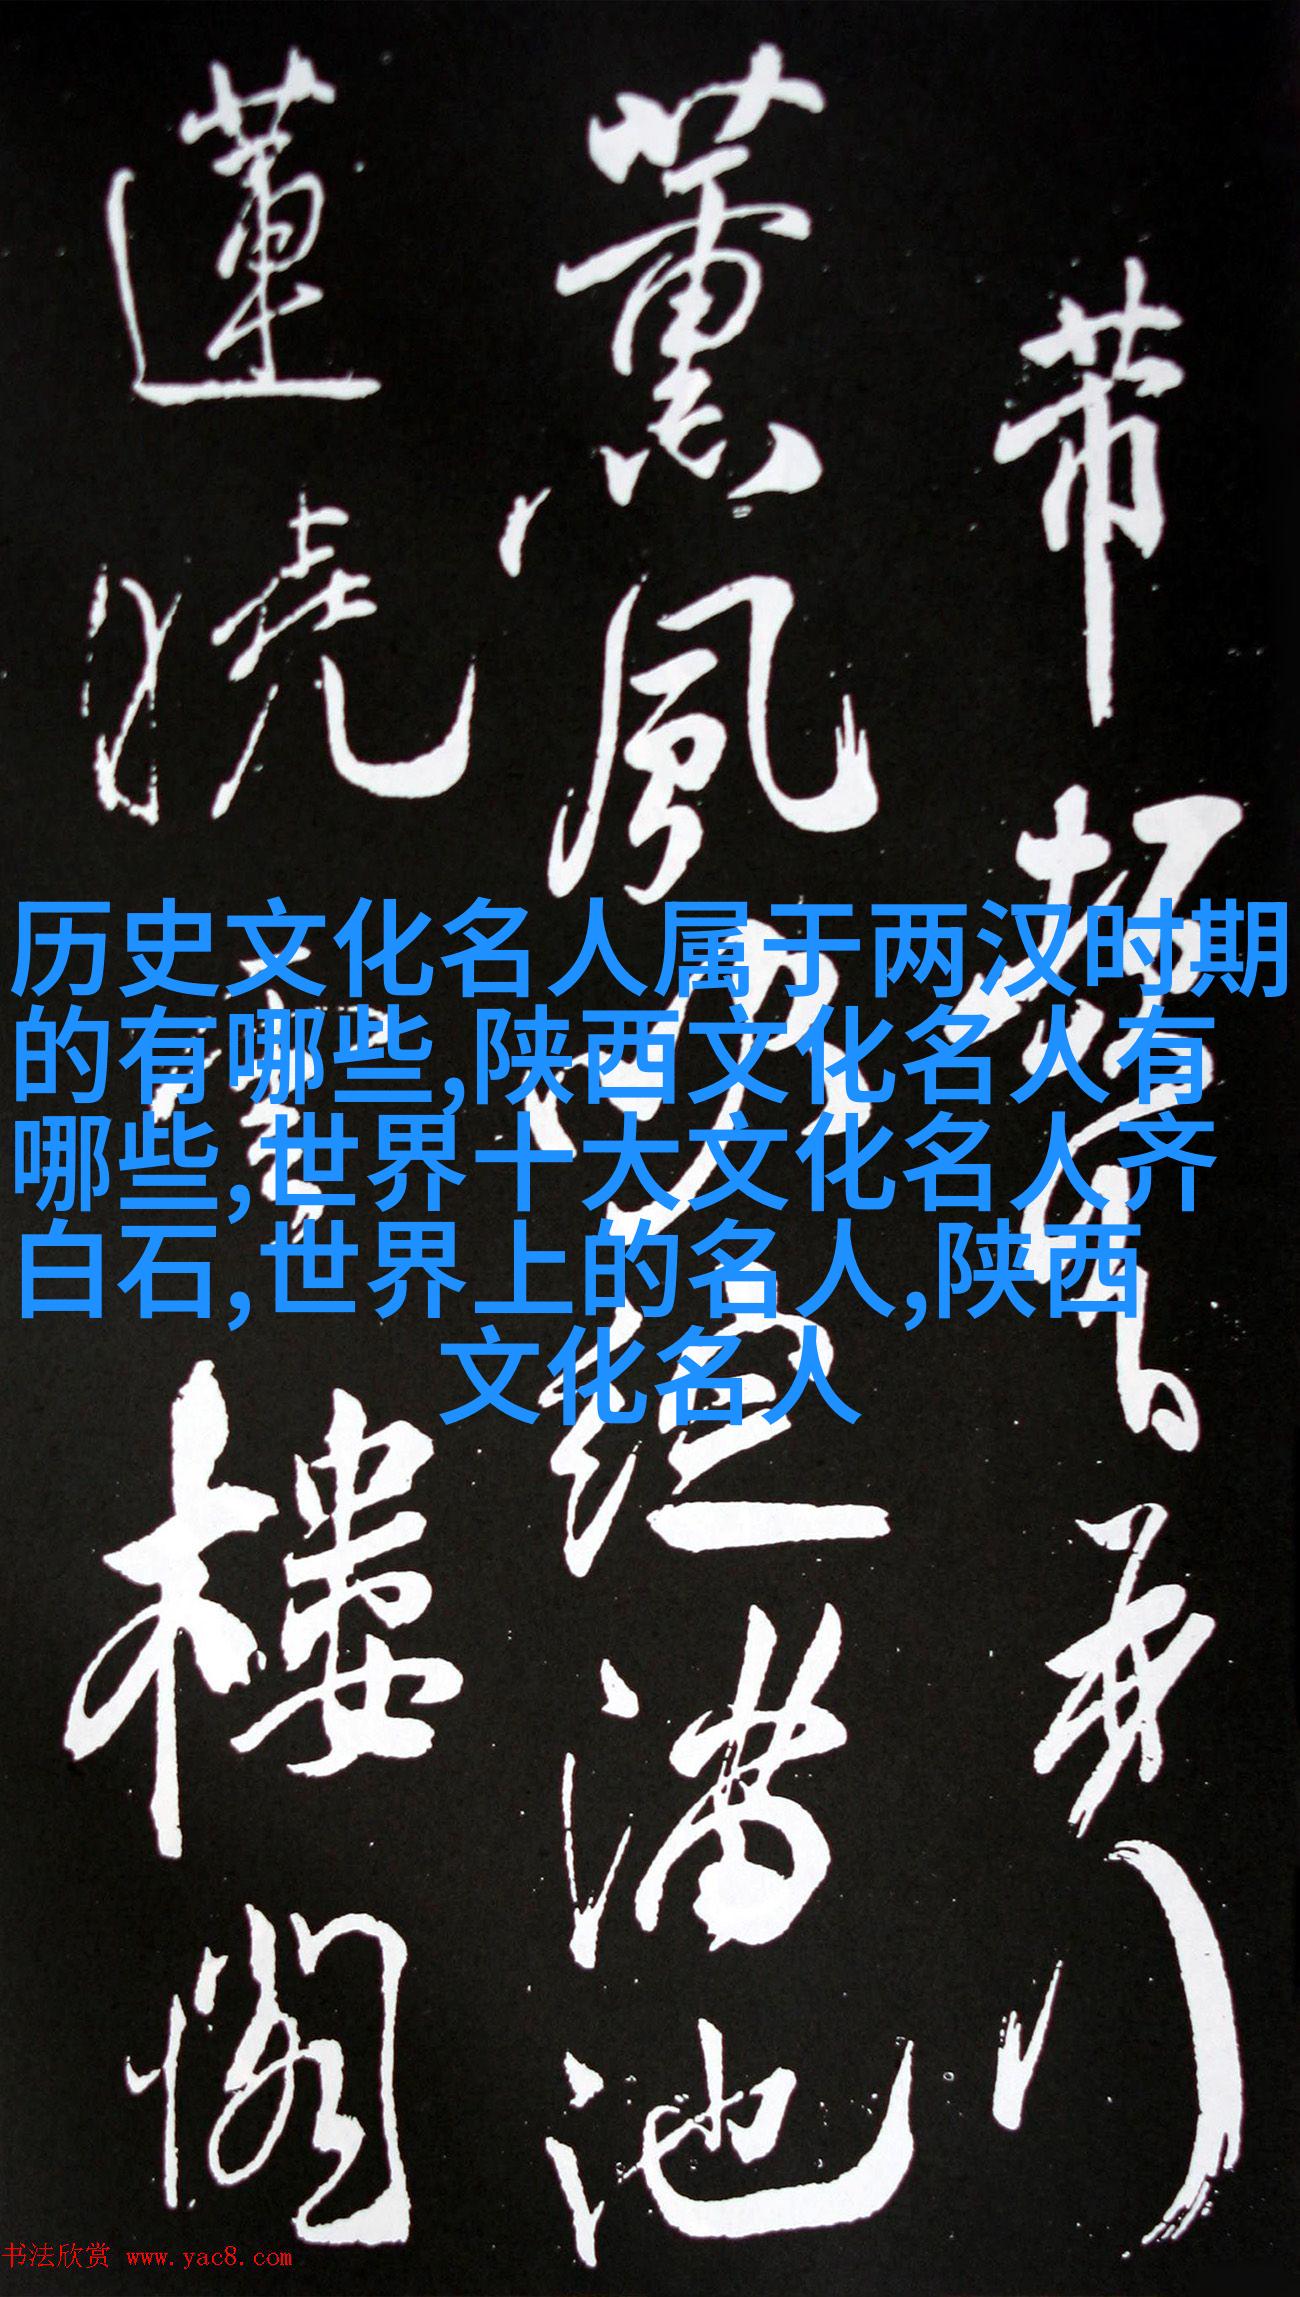 芾
薰風 滿池
蓮繞 樓閣
历史文化名人属于两汉时期
的有哪些,陕西文化名人有
哪些,世界十大文化名人齐
白石,世界上的名人,陕西
文化名人
书法欣赏 www.yac8.com